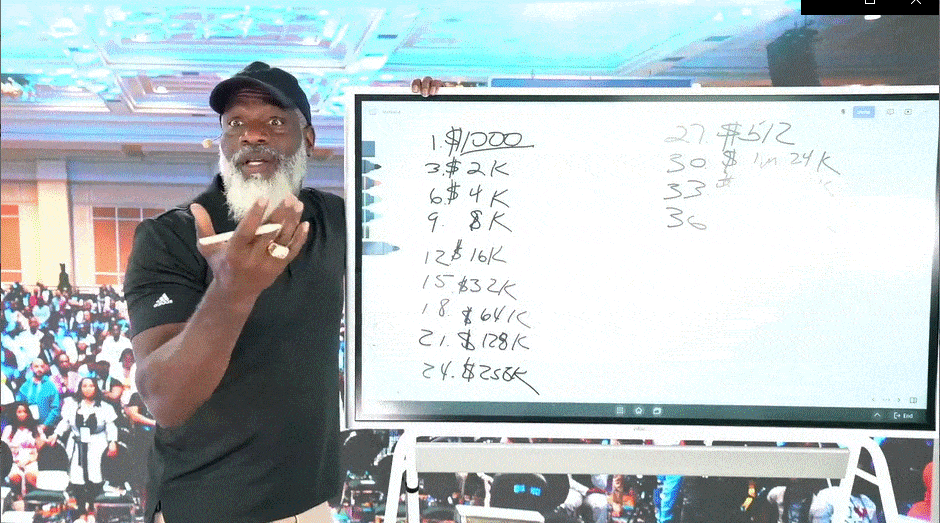 1. $1000
3. $ 2K
6. $ 4K
9. 8K
12 $ 16K
15. $32K
18. $64K
21. $128K
24. $256K
27. $512
30. $ 1m 24K
33. $
36
adidas
End